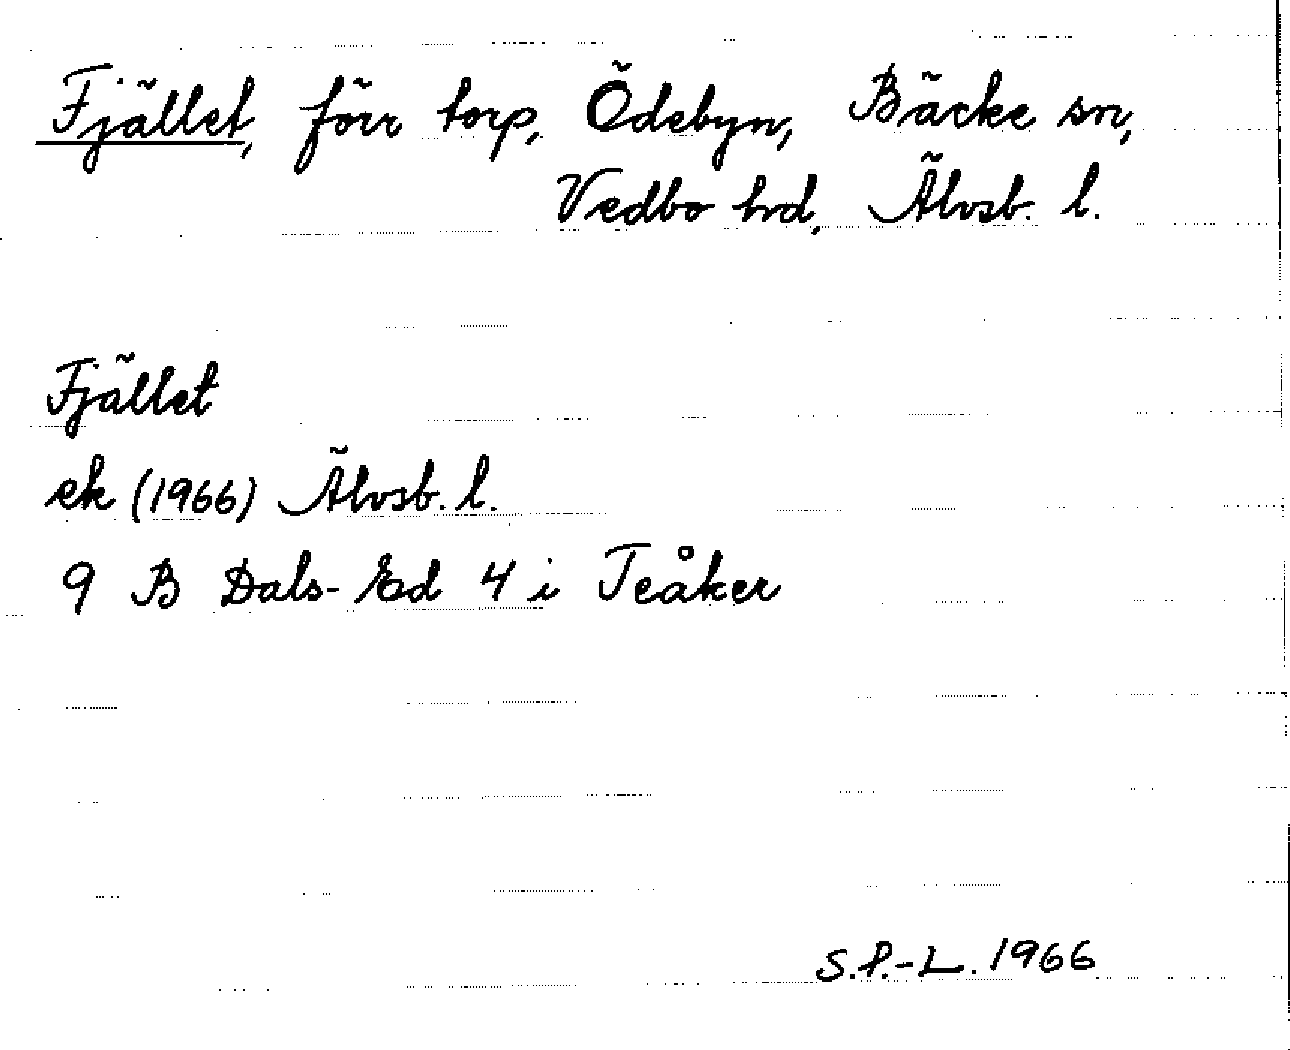 Fjället, förr torp, Ödebyn, Bäcke sn,
Vedbo hd, Älvsb. l.
Fjället
ek (1966) Älvsb. l.
9 B Dals-Ed 4 i Teåker
S.P.-L. 1966